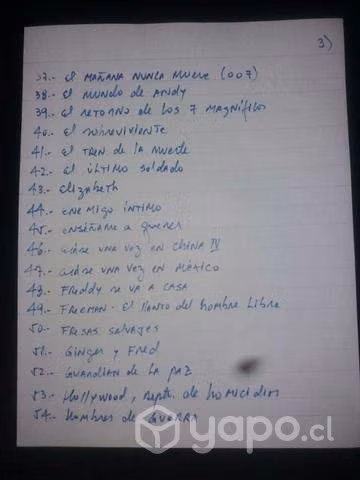 3)
37.- El MAÑANA NUNCA MUERE (007)
38.- El MUNDO de ANDY
39.- El RETORNO de LOS 7 MAGNÍFICOS
40.- El sobreviviente
41.- El TREN de la MUERTE
42.- El ÚLTIMO SOLDADO
43.- Elizabeth
44.- ENEMIGO ÍNTIMO
45.- ENSÉÑAME a querer
46.- ERASE UNA VEZ EN CHINA IV
47.- ERASE UNA VEZ EN MÉXICO
48.- FREDDY se va a CASA
49.- FREEMAN - El llanto del hombre libre
50.- FRESAS SALVAJES
51.- GINGER y FRED
52.- GUARDIAN de LA PAZ
53.- HOLLYWOOD, Depto. de homicidios
54.- Hombres de GUERRA
yapo.cl